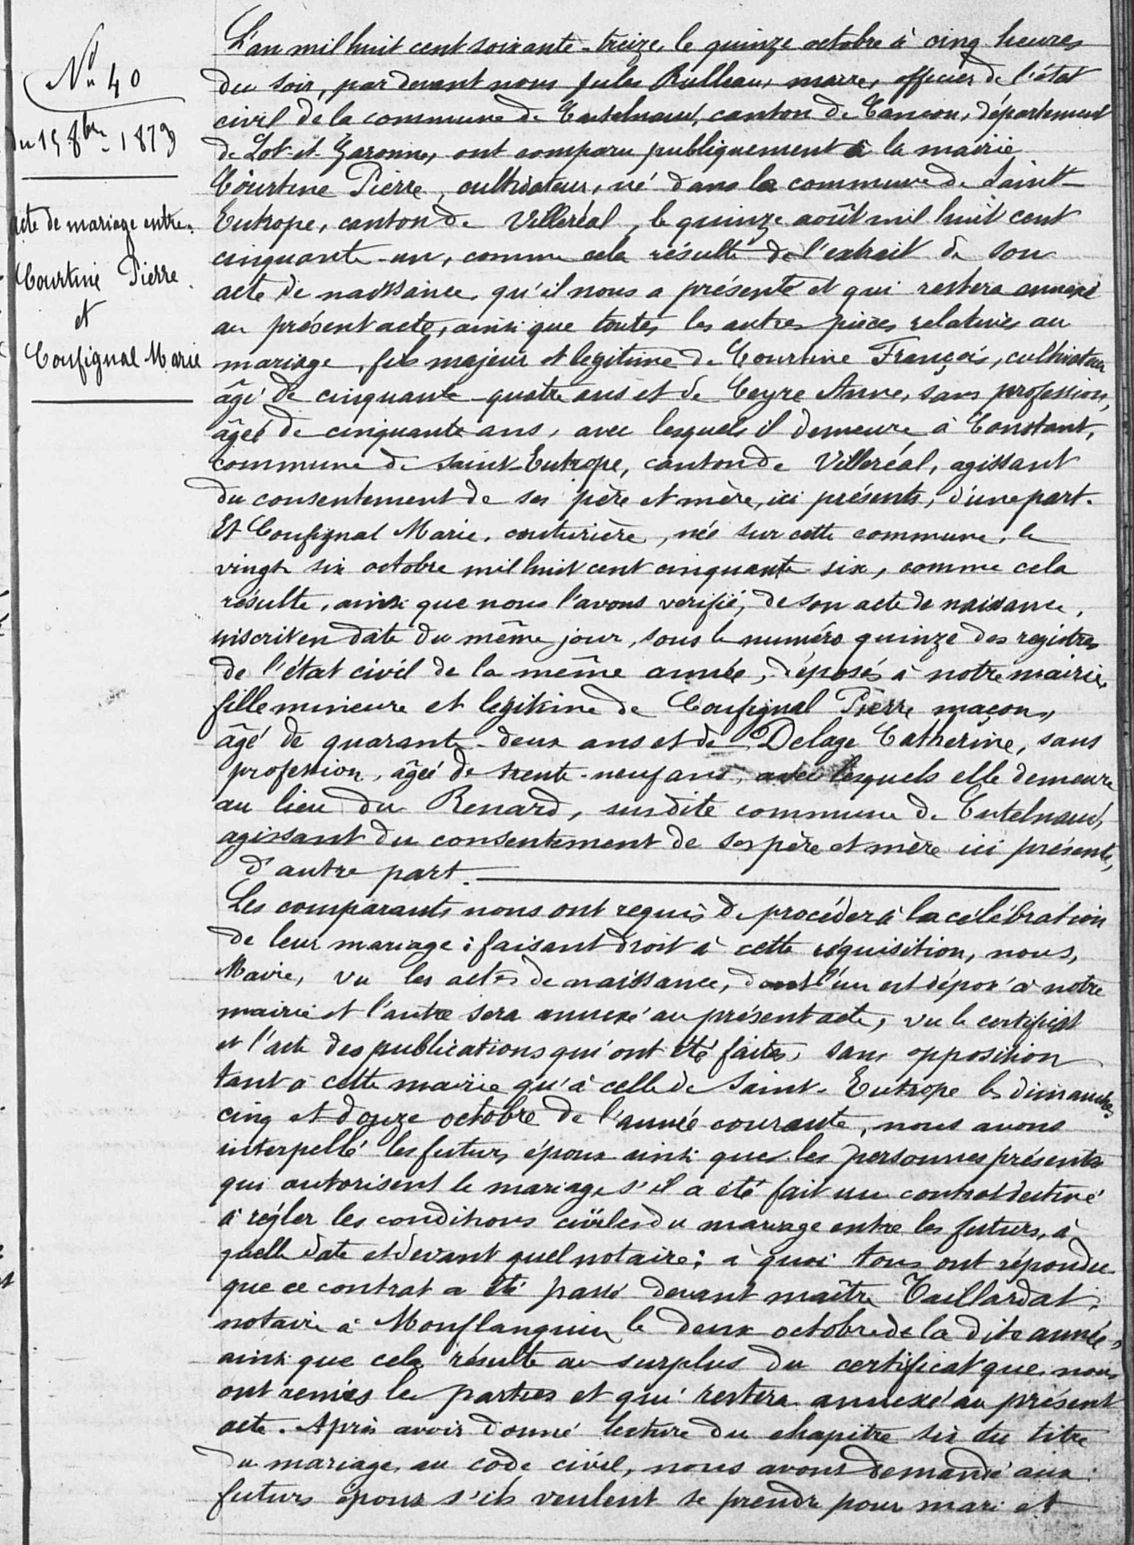 N° 40
du 15 8bre 1873
Acte de mariage entre
Courtine Pierre
et
Cousignal Marie
L'an mil huit cent soixante-treize le quinze octobre à cinq heures
du soir, par devant nous Jules Rulleau, maire, officier de l'état
civil de la commune de Castelnaud, canton de Cancon, département
de Lot-et-Garonne, ont comparu publiquement à la mairie
Courtine Pierre, cultivateur, né dans la commune de Saint-
Eutrope, canton de Villeréal, le quinze août mil huit cent
cinquante-un, comme cela résulte de l'extrait de son
acte de naissance, qu'il nous a présenté et qui restera annexé
au présent acte, ainsi que toutes les autres pièces relatives au
mariage, fils majeur et legitime de Courtine François, cultivateur
âgé de cinquante-quatre ans et de Ceyre Anne, sans profession,
âgée de cinquante ans, avec lesquels il demeure à Constant,
commune de Saint-Eutrope, canton de Villeréal, agissant
du consentement de ses père et mère, ici présents, d'une part.
Et Cousignal Marie, couturière, née sur cette commune, le
vingt six octobre mil huit cent cinquante six, comme cela
résulte, ainsi que nous l'avons vérifié, de son acte de naissance,
inscrit en date du même jour, sous le numéro quinze des registres
de l'état civil de la même année, déposés à notre mairie,
fille mineure et légitime de Cousignal Pierre maçon,
âgé de quarante-deux ans et de Delage Catherine, sans
profession, âgée de trente-neuf ans, avec lesquels elle demeure
au lieu du Renard, susdite commune de Castelnaud,
agissant du consentement de ses père et mère ici présents,
d'autre part.
Les comparants nous ont requis de procéder à la célébration
de leur mariage : faisant droit à cette réquisition, nous,
Maire, vu les actes de naissance, dont l'un est déposé à notre
mairie et l'autre sera annexé au présent acte, vu le certificat
et l'acte des publications qui ont été faites, sans opposition
tant à cette mairie qu'à celle de Saint-Eutrope les dimanches
cinq et douze octobre de l'année courante, nous avons
interpellé les futurs époux ainsi que les personnes présentes
qui autorisent le mariage s'il a été fait un contrat destiné
à régler les conditions civiles du mariage entre les futurs, à
quelle date et devant quel notaire ; à quoi tous ont répondu
que ce contrat a été passé devant maître Taillardat,
notaire à Monflanquin le deux octobre de la dite année,
ainsi que cela résulte au surplus du certificat que nous
ont remis les parties et qui restera annexé au présent
acte. Après avoir donné lecture du chapitre six du titre
du mariage, au code civil, nous avons demandé aux
futurs époux s'ils veulent se prendre pour mari et